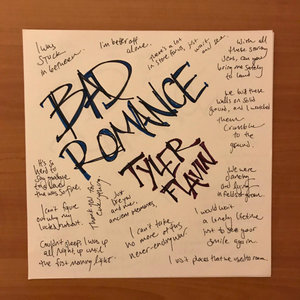 I was
stuck
in between.
I'm better off
alone.
There's a lot
in store for us, just
wait, and see.
With all
these scary
seas, can you
bring me safely
to land
BAD
ROMANCE
TYLER
FLAVIN
We built these
walls on solid
ground, and I watched
them
crumble
to the
ground.
It's so
hard to
say goodbye
to a love
that was
I can't figure
out why my
lucks runout.
Thank you for
everything.
Just
bury and
ancient memories.
We were
dancing
and
in
Couldn't sleep, I was up
all night up until
the first morning light.
I can't take
no more of this
never-ending war.
I would wait
a lonely lifetime
just to see your
smile again.
I visit places that we used to roam.